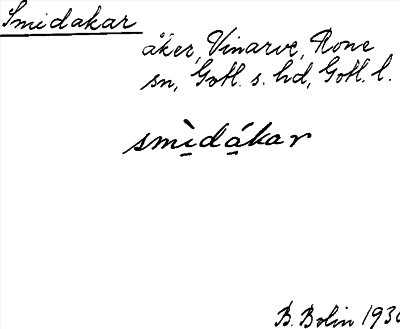 Smidakar
åker, Vinarve, Rone
sn, Gotl. s. hd, Gotl. l.
smìdákar
B. Bolin 1930